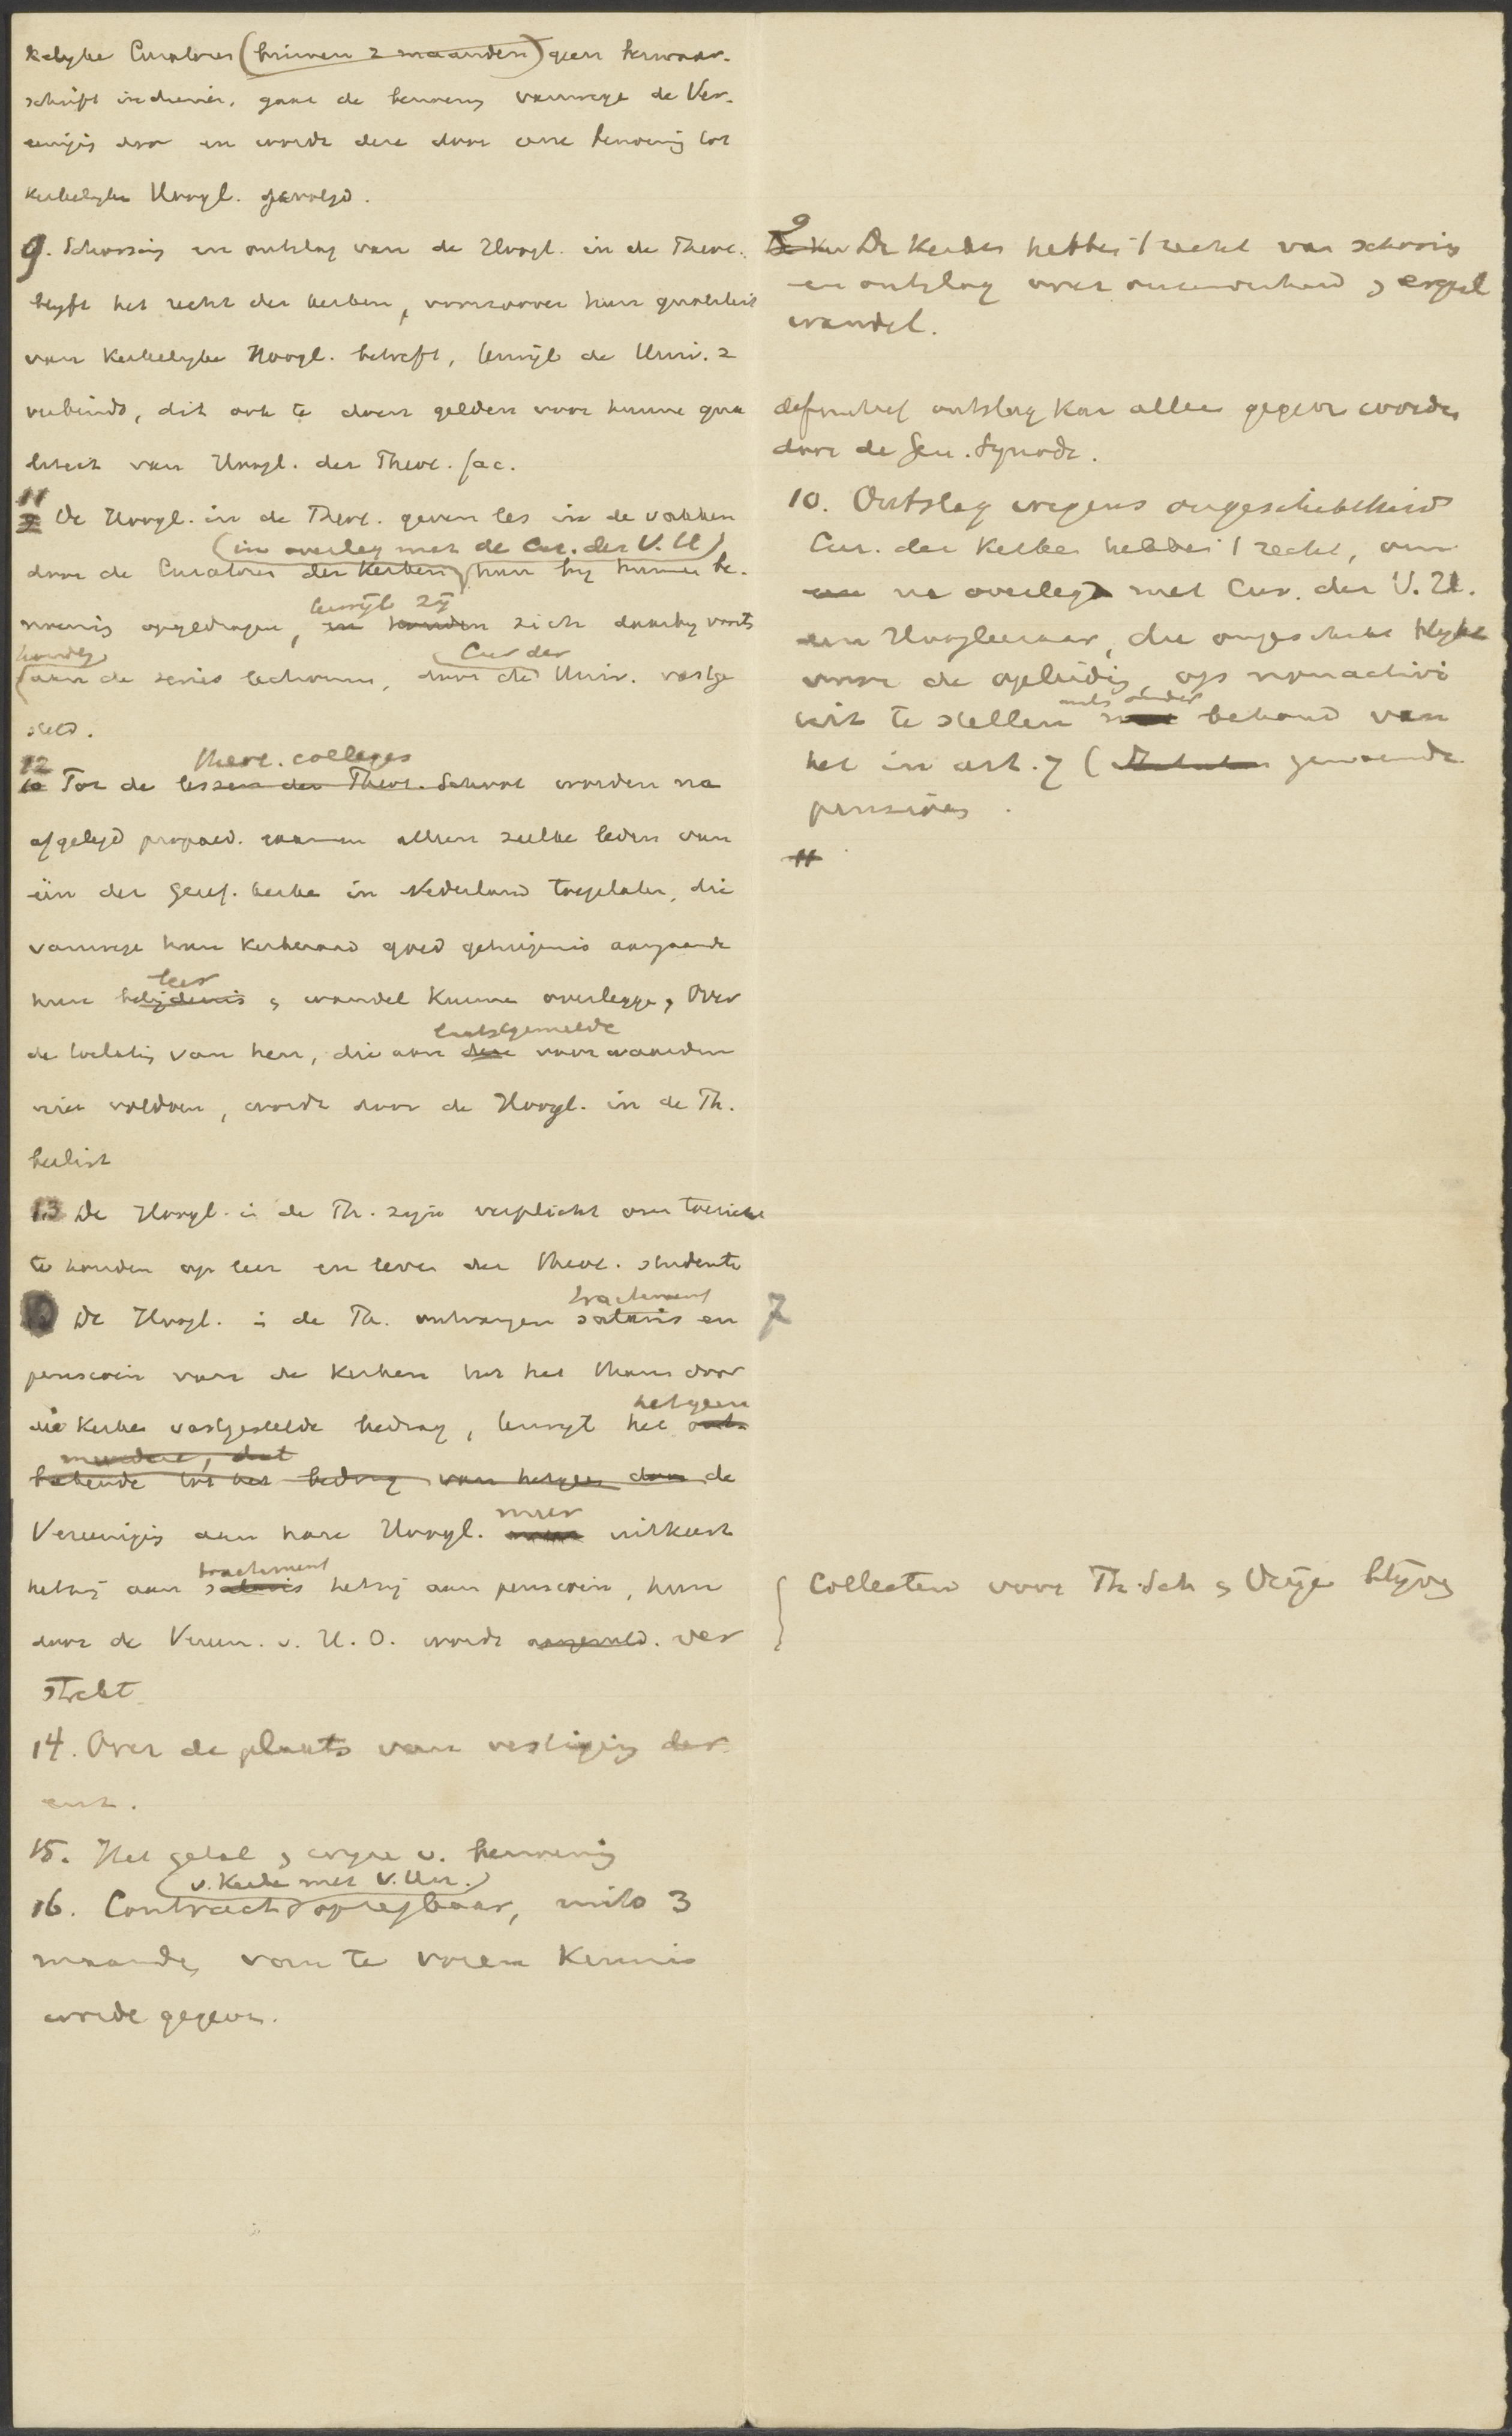 kelyke Curatores (binnen 2 maanden) geen bezwaar-
schrift indienen, gaat de benoeming vanwege de Ver-
eeniging door en wordt deze door eene benoeming tot
Kerkelyke Hoogl. gevolgd.
9. Schorsing en ontslag van de Hoogl. in de Theol.
blyft het recht der kerken, voorzoover hun qualiteit
van Kerkelyke Hoogl. betreft, terwijl de Univ. z
verbindt, dit ook te doen gelden voor hunne qua
liteit van Hoogl. der Theol. fac.
11 De Hoogl. in de Theol. geven les in de vakken
(in overleg met de Cur. der V. U)
door de Curatores der Kerken hun by hunne be-
noeming opgedragen, en houden zich daarby voorts
terwijl zij
houden Cur der
aan de series lectionum, door de Univ. vastge
steld.
12 theol. colleges
10 Tot de lessen der Theol. School worden na
afgelegd propaed. examen alleen zulke leden van
één der Geref. kerken in Nederland toegelaten, die
vanwege hun Kerkeraad goed getuigenis aangaande
leer
hun belijdenis en wandel kunnen overleggen, Over
laatstgemelde
de toelating van hen, die aan deze voorwaarden
niet voldoen, wordt door de Hoogl. in de Th.
beslist
13 De Hoogl. in de Th. zijn verplicht om toezicht
te houden op leer en leven der theol. studenten
tractement
De Hoogl. in de Th. ontvangen salaris en
pensioen van de Kerken tot het thans door
die Kerken vastgestelde bedrag, terwijl het
hetgeen
meerdere, dat
bekende tot het bedrag van hetgeen door de
Vereeniging aan hare Hoogl. uitkeert
meer
tractement
hetzij aan salaris hetzij aan pensioen, hun
door de Vereen. v. H. O. wordt aangevuld. ver
strekt
14. Over de plaats van vestiging der
enz.
15. Het getal en wyze v. benoeming
(v. Kerke met V. Un.)
16. Contract opzegbaar, mits 3
maanden van te voren Kennis
worde gegeven.
9
De Ker De Kerken hebben 't recht van schorsing
en ontslag over onrechtzinnigheid en ergerl
wandel.
definitief ontslag kan alleen gegeven worden
door de Gen. Synode.
10. Ontslag wegens ongeschiktheid
Cur. der Kerken hebben 't recht, om
na overleg met Cur. der V. U.
een Hoogleeraar, die ongeschikt blykt
voor de opleiding, op nonactivi
teit te stellen behoud van
mits onder
het in art. 7 ( genoemde
pensioen.
11
7
Collecten voor Th. Sch en Vrije blijven